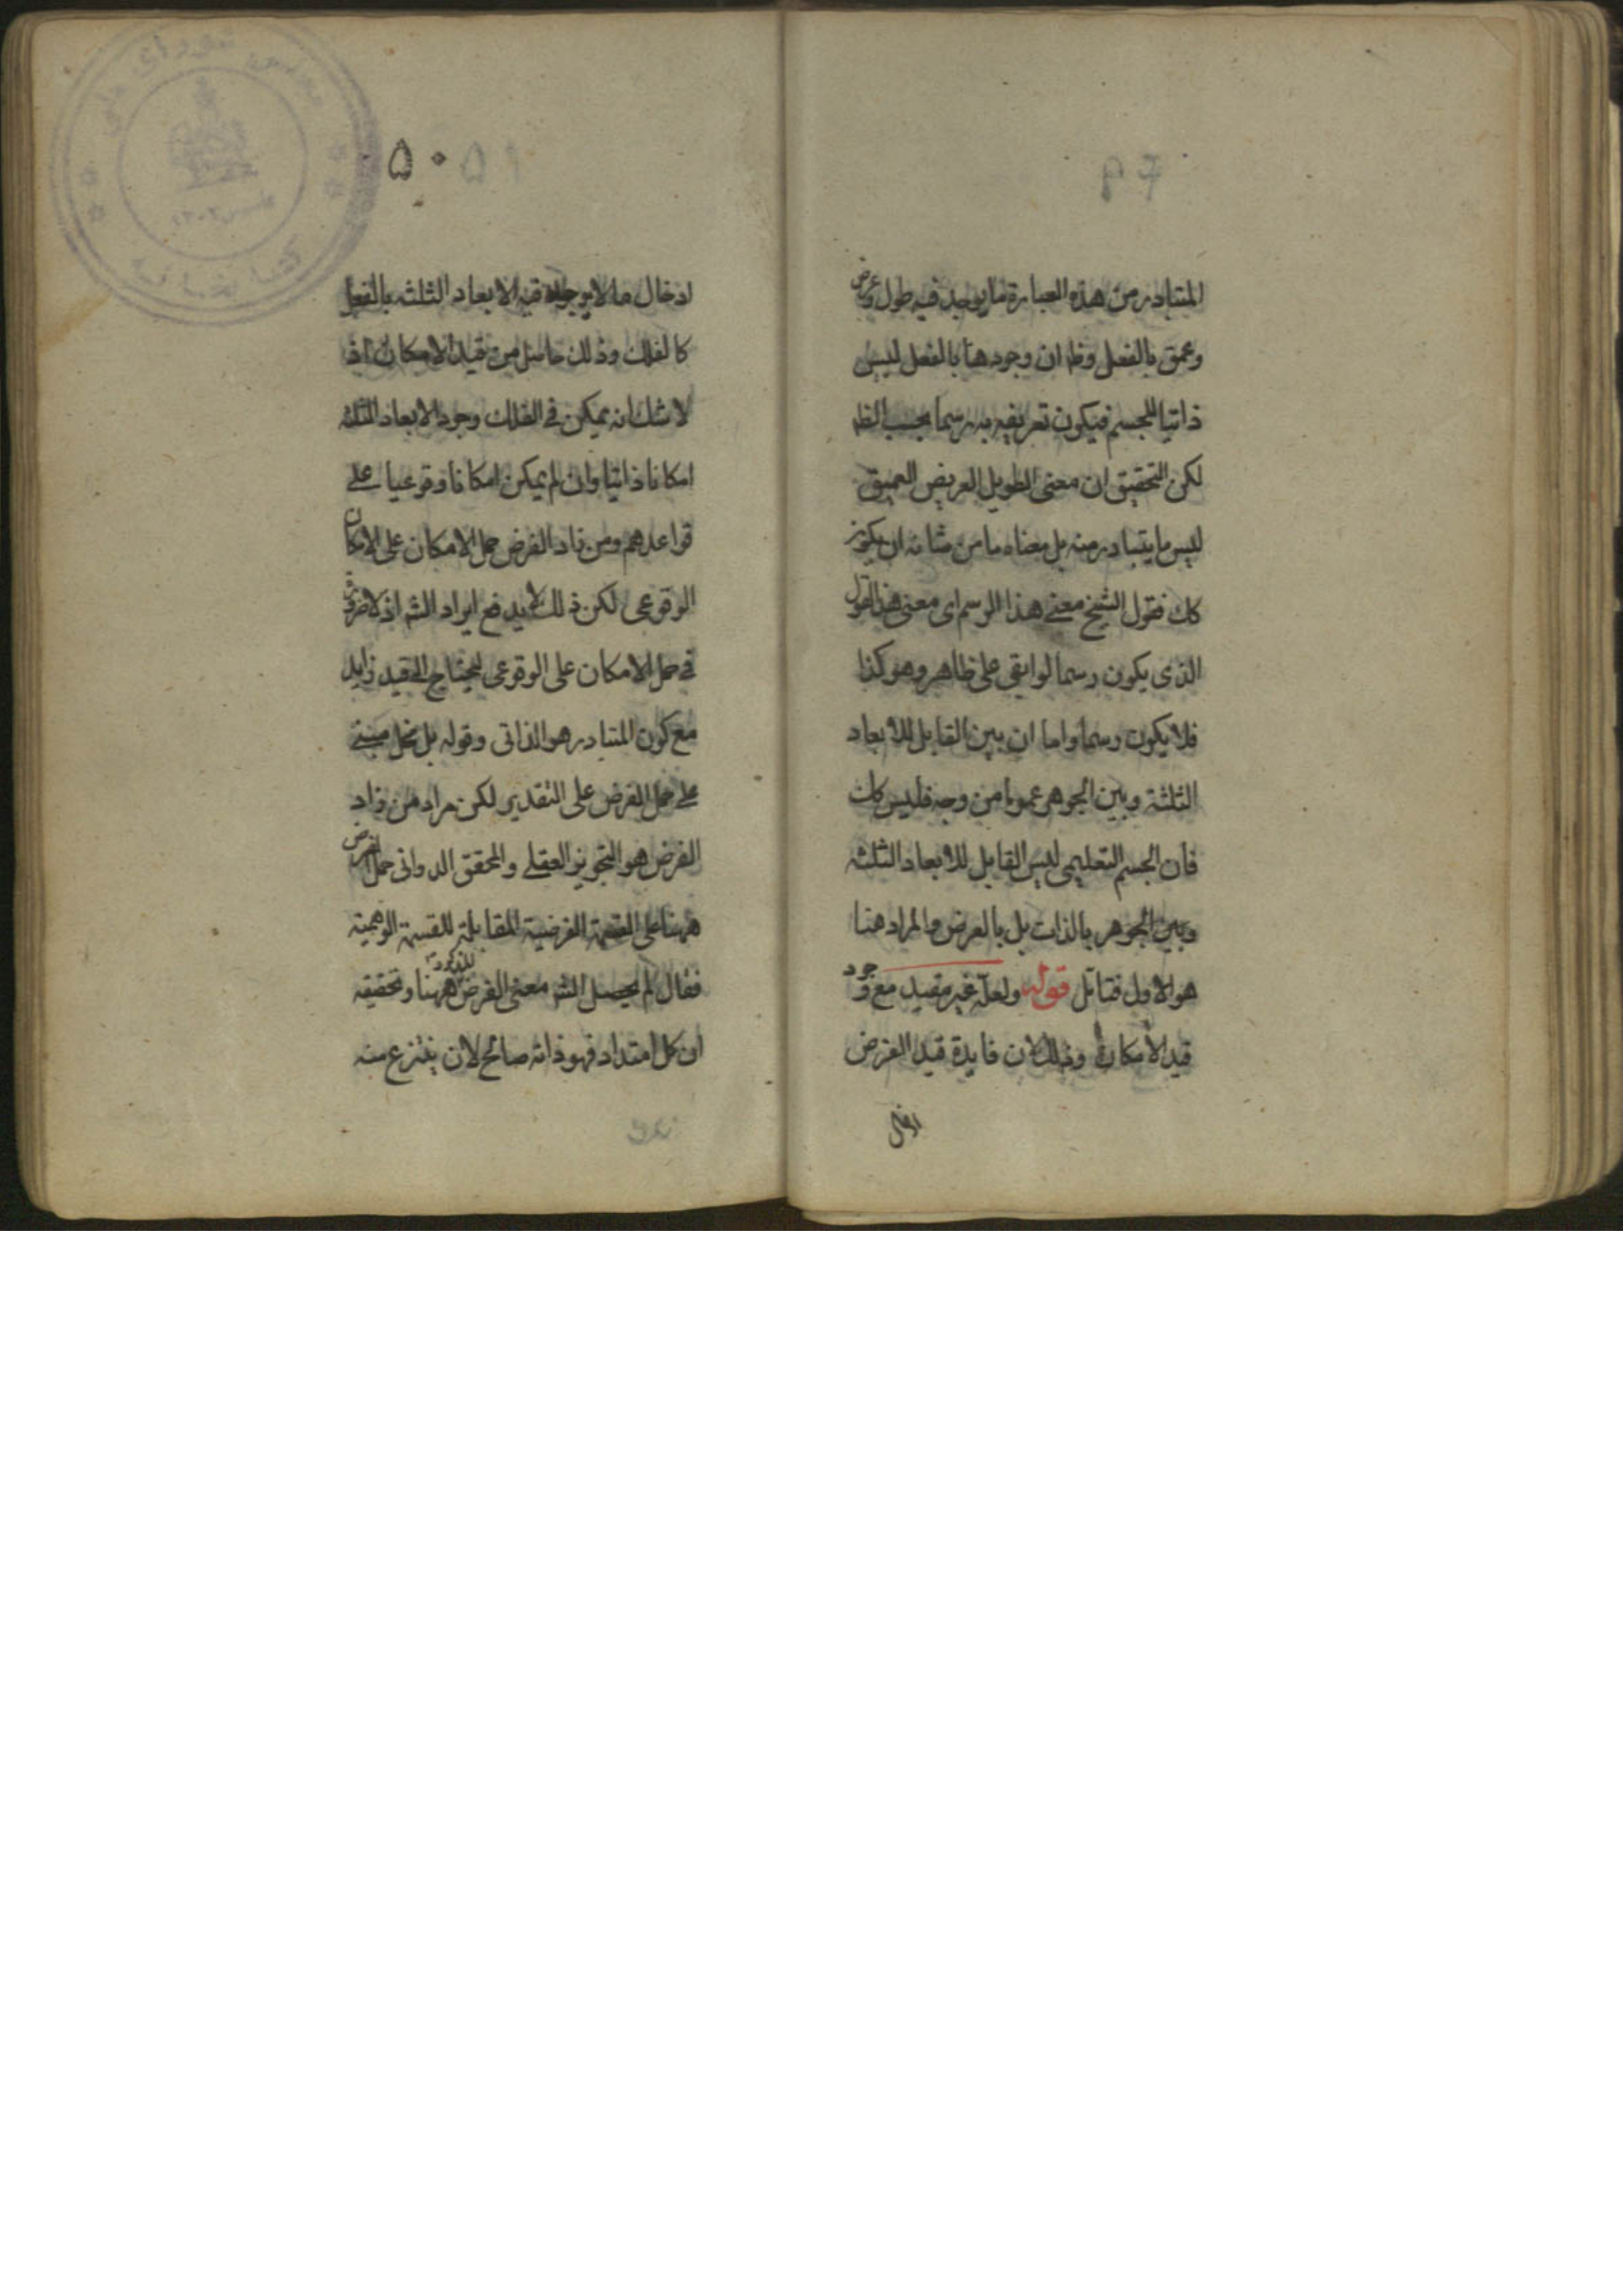 المتبادر من هذه العبارة ما يوجد فيه طول وعرض
وعمق بالفعل وظ ان وجودها بالفعل ليس
ذاتيا للجسم فيكون تعريفه به رسما بحسب الظ
لكن التحقيق ان معنى الطويل العريض العميق
ليس ما يتبادر منه بل معناه ما من شانه ان يكون
كك فقول الشيخ معنى هذا الرسم اى معنى هذا القول
الذى يكون رسما لو ابقى على ظاهر وهو كذا
فلا يكون رسما واما ان بين القابل للابعاد
الثلثة وبين الجوهر عموما من وجه فليس كك
فان الجسم التعليمى ليس القابل للابعاد الثلثه
وبين الجوهر بالذات بل بالعرض والمراد هنا
هو الاول فتامل قوله ولعله غير مفيد مع وجود
قيد الامكان وذلك لان فايدة قيد الفرض
ادخال
۵۰
ادخال ما لا يوجد فيه الابعاد الثلثه بالفعل
كالفلك وذلك حاصل من قيد الامكان اذ
لا شك انه يمكن فى الفلك وجود الابعاد الثلثه
امكانا ذاتيا وان لم يمكن امكانا وقوعيا على
قواعدهم ومن زاد الفرض حمل الامكان على الامكان
الوقوعى لكن ذلك لا يدفع ايراد الشه اذ لا ضرورة
فى حمل الامكان على الوقوعى ليحتاج الى قيد زايد
مع كون المتبادر هو الذاتى وقوله بل مخل مبنى
على حمل الفرض على التقدير لكن مراد من زاد
الفرض هو التجويز العقلى والمحقق الدوانى حمل الفرض
ههنا على القسمة الفرضية المقابلة للقسمة الوهمية
فقال لم يحصل الشه معنى الفرض المذكور ههنا وتحقيقه
ان كل امتداد فهو ذاته صالح لان ينتزع منه